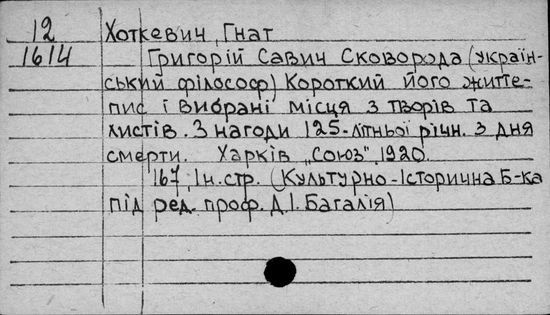 12 Хоткевич, Гнат
1614 Григорій Савич Сковорода (україн-
ський філософ) Короткий його життє-
пис і вибрані місця з творів та
листів. З нагоди 125-літньої річн. з дня
смерти. Харків „Союз", 1920.
167, Ін.стр. (Культурно-Історична Б-ка
під ред. проф. Д.І. Багалія)